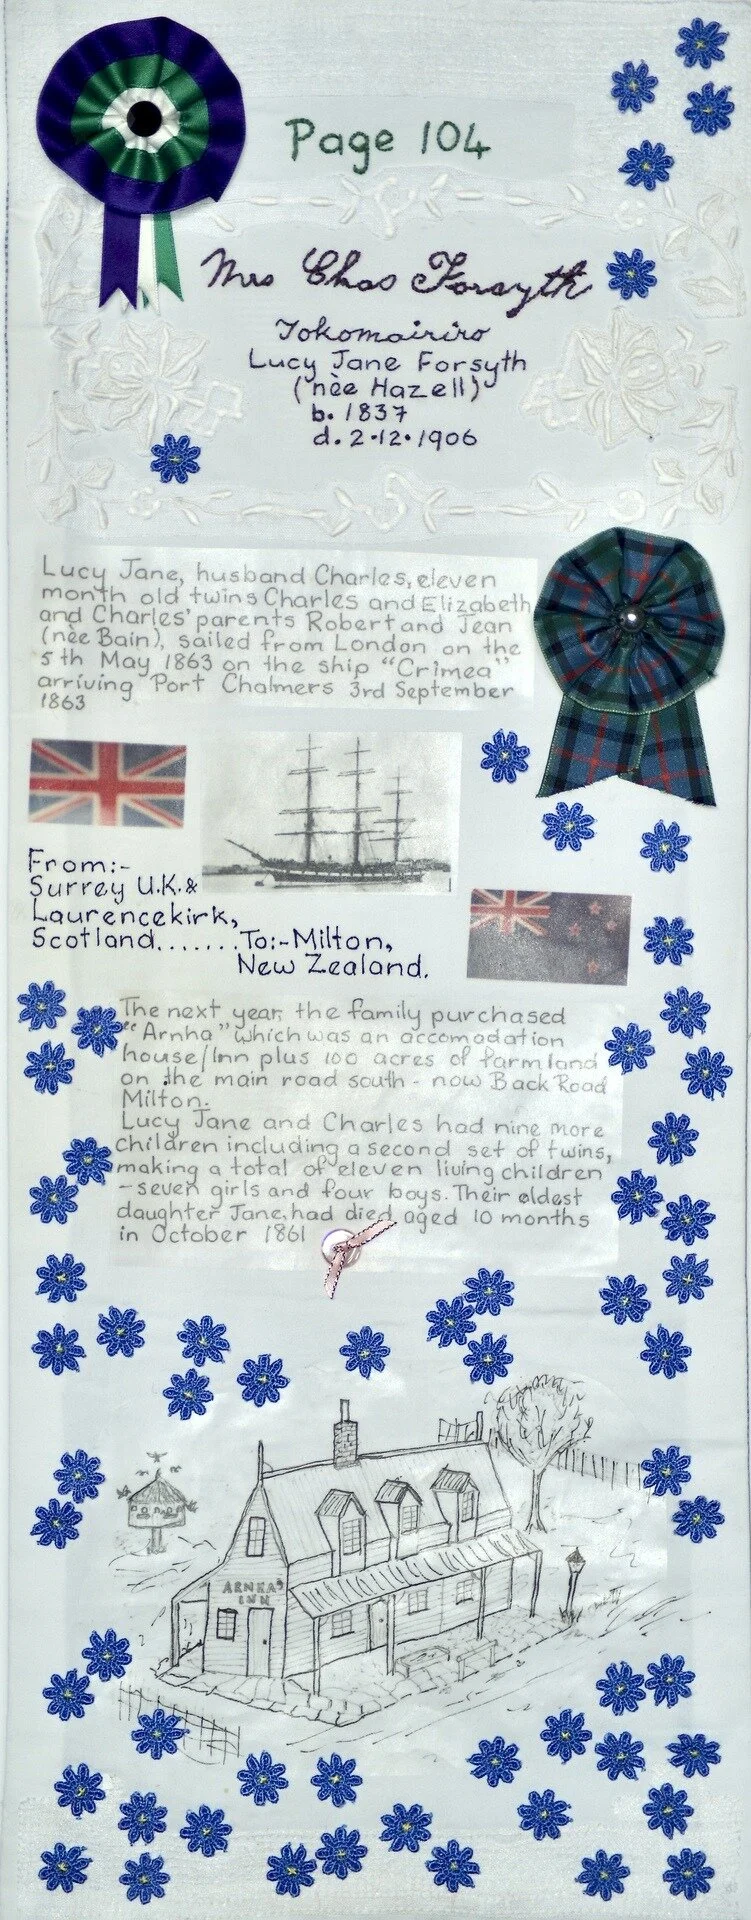 Page 104
Mrs Chas Forsyth
Tokomairiro
Lucy Jane Forsyth
(nèe Hazell)
b. 1837
d. 2.12.1906
Lucy Jane, husband Charles, eleven
month old twins Charles and Elizabeth
and Charles' parents Robert and Jean
(nèe Bain), sailed from London on the
5th May 1863 on the ship "Crimea"
arriving Port Chalmers 3rd September
1863
From:-
Surrey U.K.&
Laurencekirk,
Scotland.......To:-Milton,
New Zealand.
The next year, the family purchased
"Arnha" which was an accomodation
house/Inn plus 100 acres of farmland
on the main road south - now Back Road
Milton.
Lucy Jane and Charles had nine more
children including a second set of twins,
making a total of eleven living children
-seven girls and four boys. Their eldest
daughter Jane, had died aged 10 months
in October 1861
ARNHA'S
INN